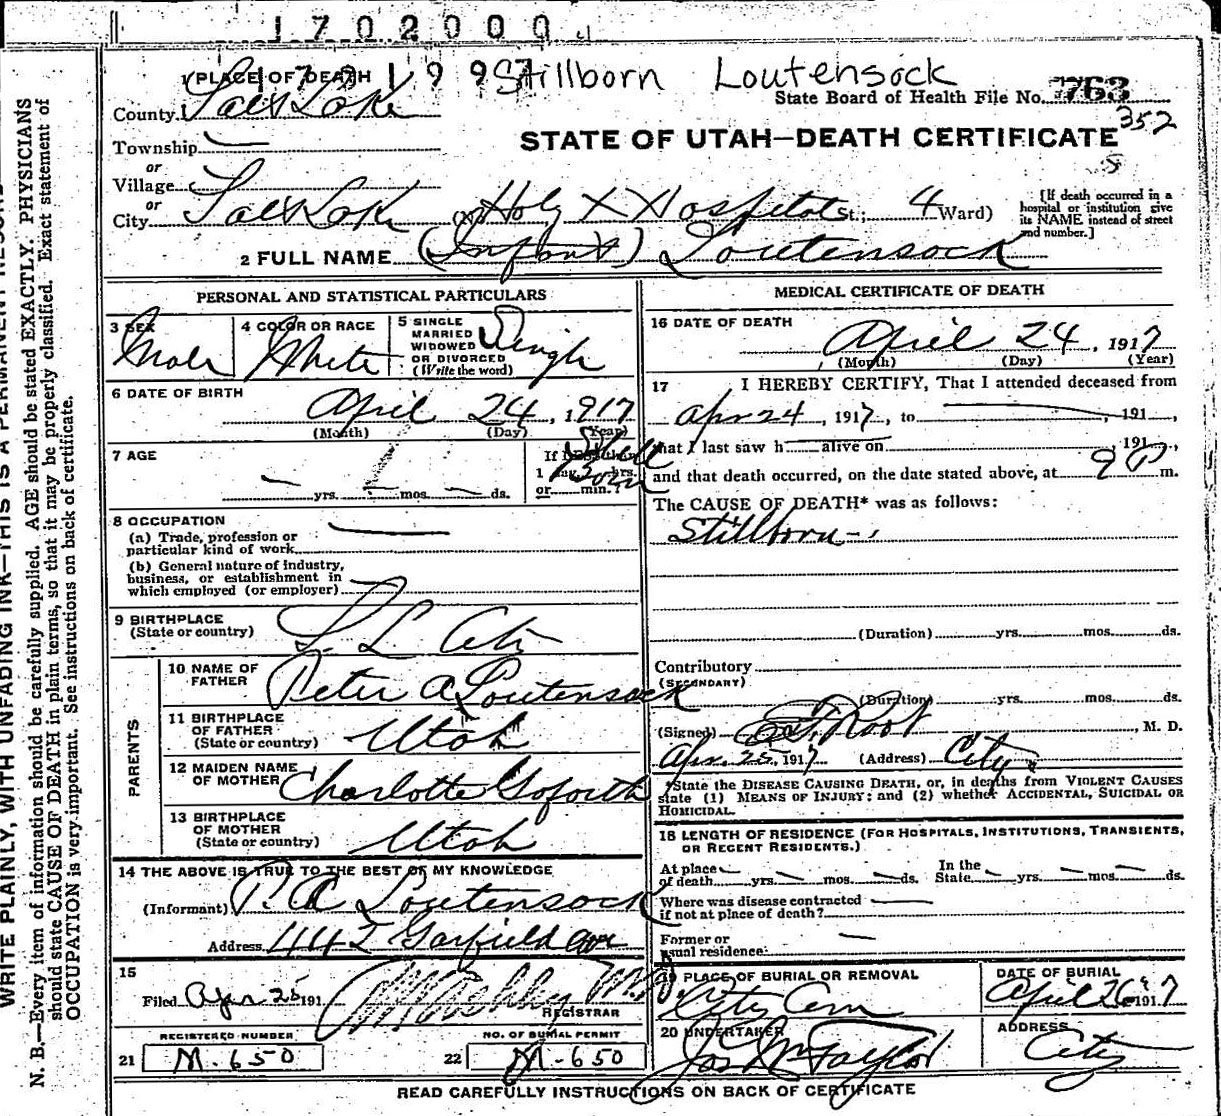 1702000
1 PLACE OF DEATH Stillborn Loutensock
State Board of Health File No. 763
352
County Salt Lake
Township —
or
Village
or
City Salt Lake (No. Holy X Hospital St.; 4 Ward)
[If death occurred in a hospital or institution give its NAME instead of street and number.]
STATE OF UTAH—DEATH CERTIFICATE
2 FULL NAME (Infant) Loutensock
PERSONAL AND STATISTICAL PARTICULARS
3 SEX Male
4 COLOR OR RACE White
5 SINGLE MARRIED WIDOWED OR DIVORCED (Write the word) Single
6 DATE OF BIRTH
April 24, 1917
(Month) (Day) (Year)
7 AGE
— yrs. — mos. — ds.
If LESS than 1 day, hrs. or min.? Still Born
8 OCCUPATION
(a) Trade, profession or particular kind of work
(b) General nature of industry, business, or establishment in which employed (or employer)
9 BIRTHPLACE
(State or country) S. L. City
PARENTS
10 NAME OF FATHER Peter A Loutensock
11 BIRTHPLACE OF FATHER (State or country) Utah
12 MAIDEN NAME OF MOTHER Charlotte Goforth
13 BIRTHPLACE OF MOTHER (State or country) Utah
14 THE ABOVE IS TRUE TO THE BEST OF MY KNOWLEDGE
(Informant) P. A. Loutensock
Address Garfield ave
15
Filed Apr 25 191
REGISTRAR
REGISTERED NUMBER
21 M-650
NO. OF BURIAL PERMIT
22 M-650
MEDICAL CERTIFICATE OF DEATH
16 DATE OF DEATH
April 24, 1917
(Month) (Day) (Year)
17 I HEREBY CERTIFY, That I attended deceased from
Apr 24, 1917, to —, 191 ,
that I last saw h — alive on —, 191 ,
and that death occurred, on the date stated above, at 9 P m.
The CAUSE OF DEATH* was as follows:
Stillborn -
(Duration) yrs. mos. ds.
Contributory
(SECONDARY)
(Duration) yrs. mos. ds.
(Signed) Root, M. D.
Apr. 25, 1917 (Address) City
*State the DISEASE CAUSING DEATH, or, in deaths from VIOLENT CAUSES
state (1) MEANS OF INJURY; and (2) whether ACCIDENTAL, SUICIDAL OR
HOMICIDAL.
18 LENGTH OF RESIDENCE (FOR HOSPITALS, INSTITUTIONS, TRANSIENTS,
OR RECENT RESIDENTS.)
At place of death — yrs. — mos. — ds. In the State — yrs. — mos. — ds.
Where was disease contracted
if not at place of death? —
Former or
usual residence —
19 PLACE OF BURIAL OR REMOVAL
City Cem
DATE OF BURIAL
April 26 1917
20 UNDERTAKER
Jos Wm Taylor
ADDRESS
City
READ CAREFULLY INSTRUCTIONS ON BACK OF CERTIFICATE
WRITE PLAINLY, WITH UNFADING INK—THIS IS A PERMANENT RECORD
N. B.—Every item of information should be carefully supplied. AGE should be stated EXACTLY. PHYSICIANS
should state CAUSE OF DEATH in plain terms, so that it may be properly classified. Exact statement of
OCCUPATION is very important. See instructions on back of certificate.